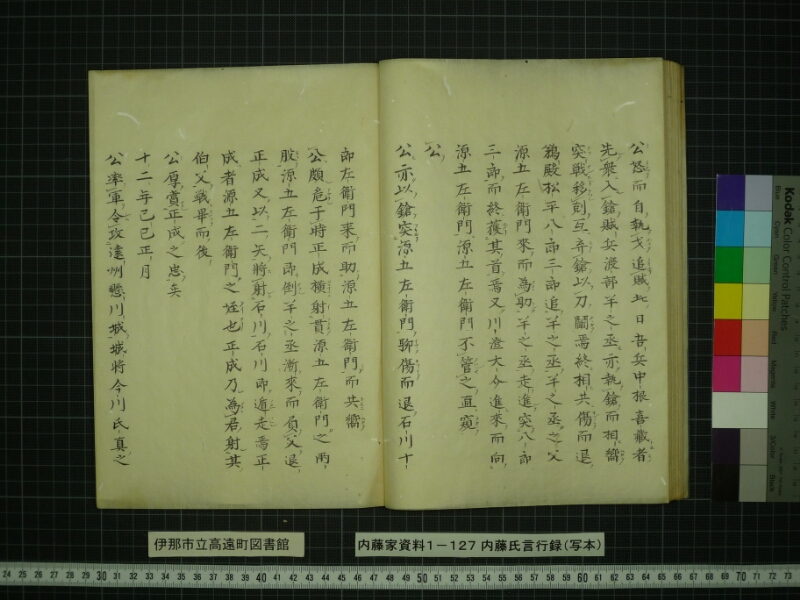 公怒而自執戈追賊此日吾兵中根喜蔵者
先衆入鎗賊兵渡部半之丞亦執鎗而相
突戦移刻互棄鎗以刀闘焉終相共傷而退
鵜殿松平八郎三郎追半之丞半之丞之父
源五左衛門来而為助半之丞走進突八郎
三郎而終獲其首焉又川澄大介進来而向
源五左衛門源五左衛門不管之直窺
公
公亦以鎗突源五左衛門聊傷而退石川十
郎左衛門来而助源五左衛門而共
公頗危于時正成横射貫源五左衛門之両
股源五左衛門即倒半之丞漸来而負父退
正成又以二矢将射石川石川即遁走焉正
成者源五左衛門之姪也正成乃為君射其
伯父戦畢而後
公厚賞正成之忠矣
十二年己巳正月
公率軍令攻遠州懸川城城将今川氏真之
伊那市立高遠町図書館
内藤家資料1－127 内藤氏言行録(写本)
Kodak Color Control Patches
Blue Cyan Green Yellow Red Magenta White 3/Color Black
24 25 26 27 28 29 30 31 32 33 34 35 36 37 38 39 40 41 42 43 44 45 46 47 48 49 50 51 52 53 54 55 56 57 58 59 60 61 62 63 64 65 66 67 68 69 70 71 72 73